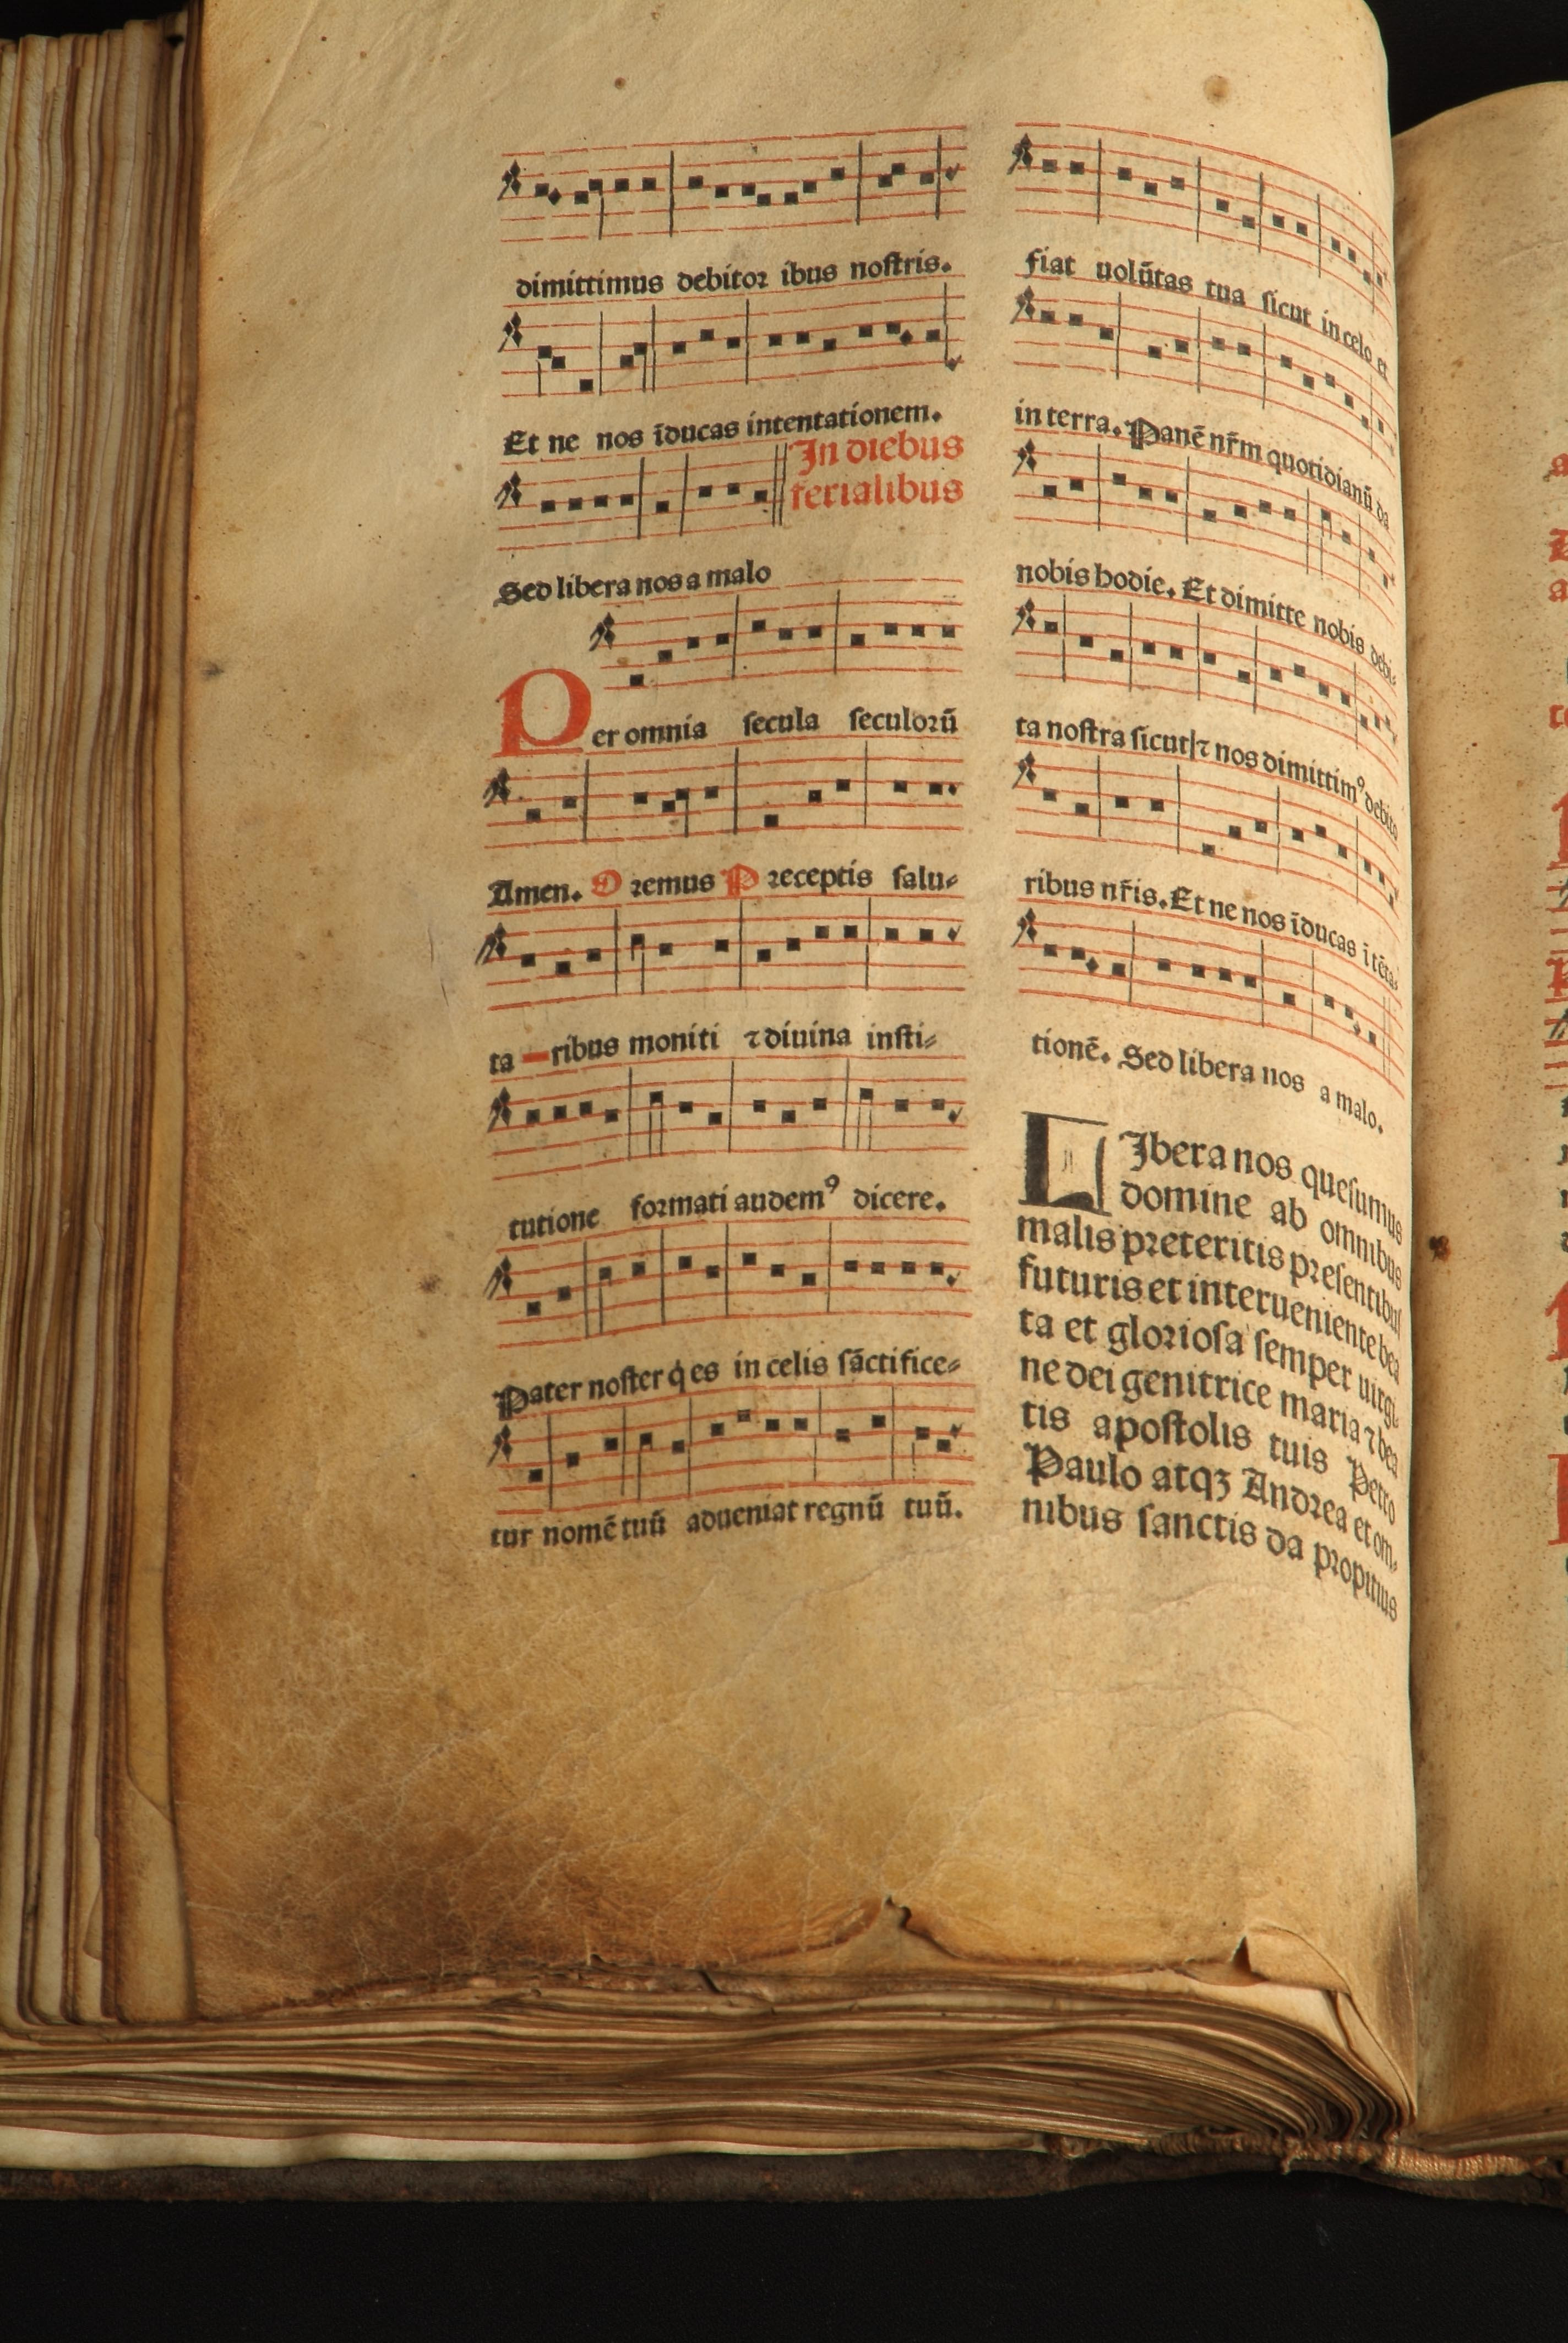 dimittimus debitoꝛ ibus noſtris.
Et ne nos īducas intentationem.
In diebus
ferialibus
Sed libera nos a malo
Per omnia ſecula ſeculoꝛū
Amen. Oꝛemus Pꝛeceptis ſalu⸗
ta ribus moniti ⁊ diuina inſti⸗
tutione foꝛmati audemꝰ dicere.
Pater noſter q̇ es in celis ſāctifice⸗
tur nomē tuū adueniat regnū tuū.
fiat uolūtas tua ſicut in celo et
in terra. Panē nr̄m quotidianū da
nobis hodie. Et dimitte nobis debi⸗
ta noſtra ſicut ⁊ nos dimittimꝰ debito
ribus nr̄is. Et ne nos īducas ī tēta⸗
tionē. Sed libera nos a malo.
LIbera nos queſumus
domine ab omnibus
malis pꝛeteritis pꝛeſentibuſ
futuris et interueniente bea
ta et glorioſa ſemper uirgi⸗
ne dei genitrice maria ⁊ bea
tis apoſtolis tuis Petro
Paulo atqꝫ Andꝛea et om⸗
nibus ſanctis da pꝛopitius